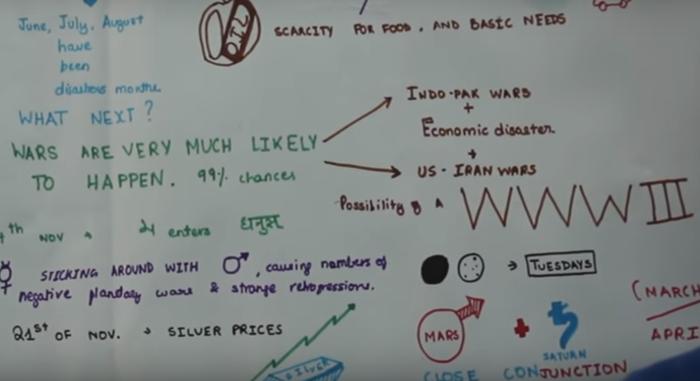 June, July, August
have
been
disastous months.
OIL
SCARCITY FOR FOOD, AND BASIC NEEDS
WHAT NEXT?
WARS ARE VERY MUCH LIKELY
TO HAPPEN. 99% chances
INDO-PAK WARS
+
Economic disaster
+
US-IRAN WARS
Possibility of A WWW III
th NOV → ♃ enters धनुस
☿ STICKING AROUND WITH ♂, causing numbers of
negative plandary wave & strange
21st OF NOV. → SILVER PRICES
SILVER
→ TUESDAYS
MARS + SATURN
CLOSE CONJUNCTION
(MARCH
APRI